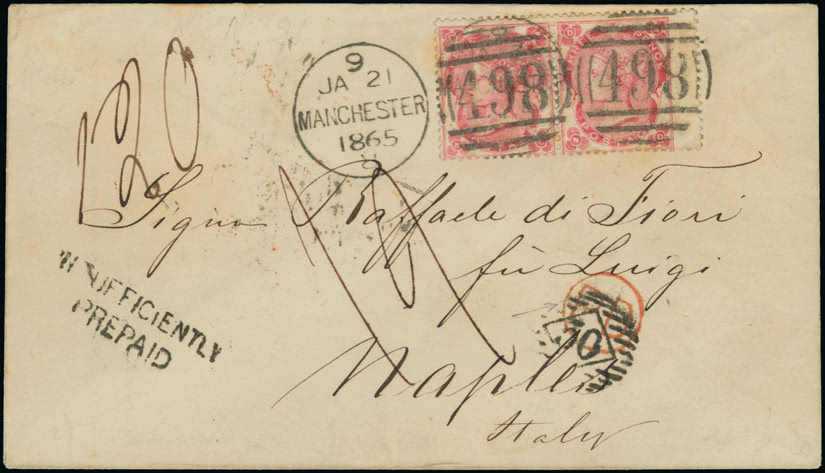 120
9
JA 21
MANCHESTER
1865
498 498
Signor Raffaele di Fiori
fù Luigi
INSUFFICIENTLY
PREPAID
PD
10
Naples
Italy